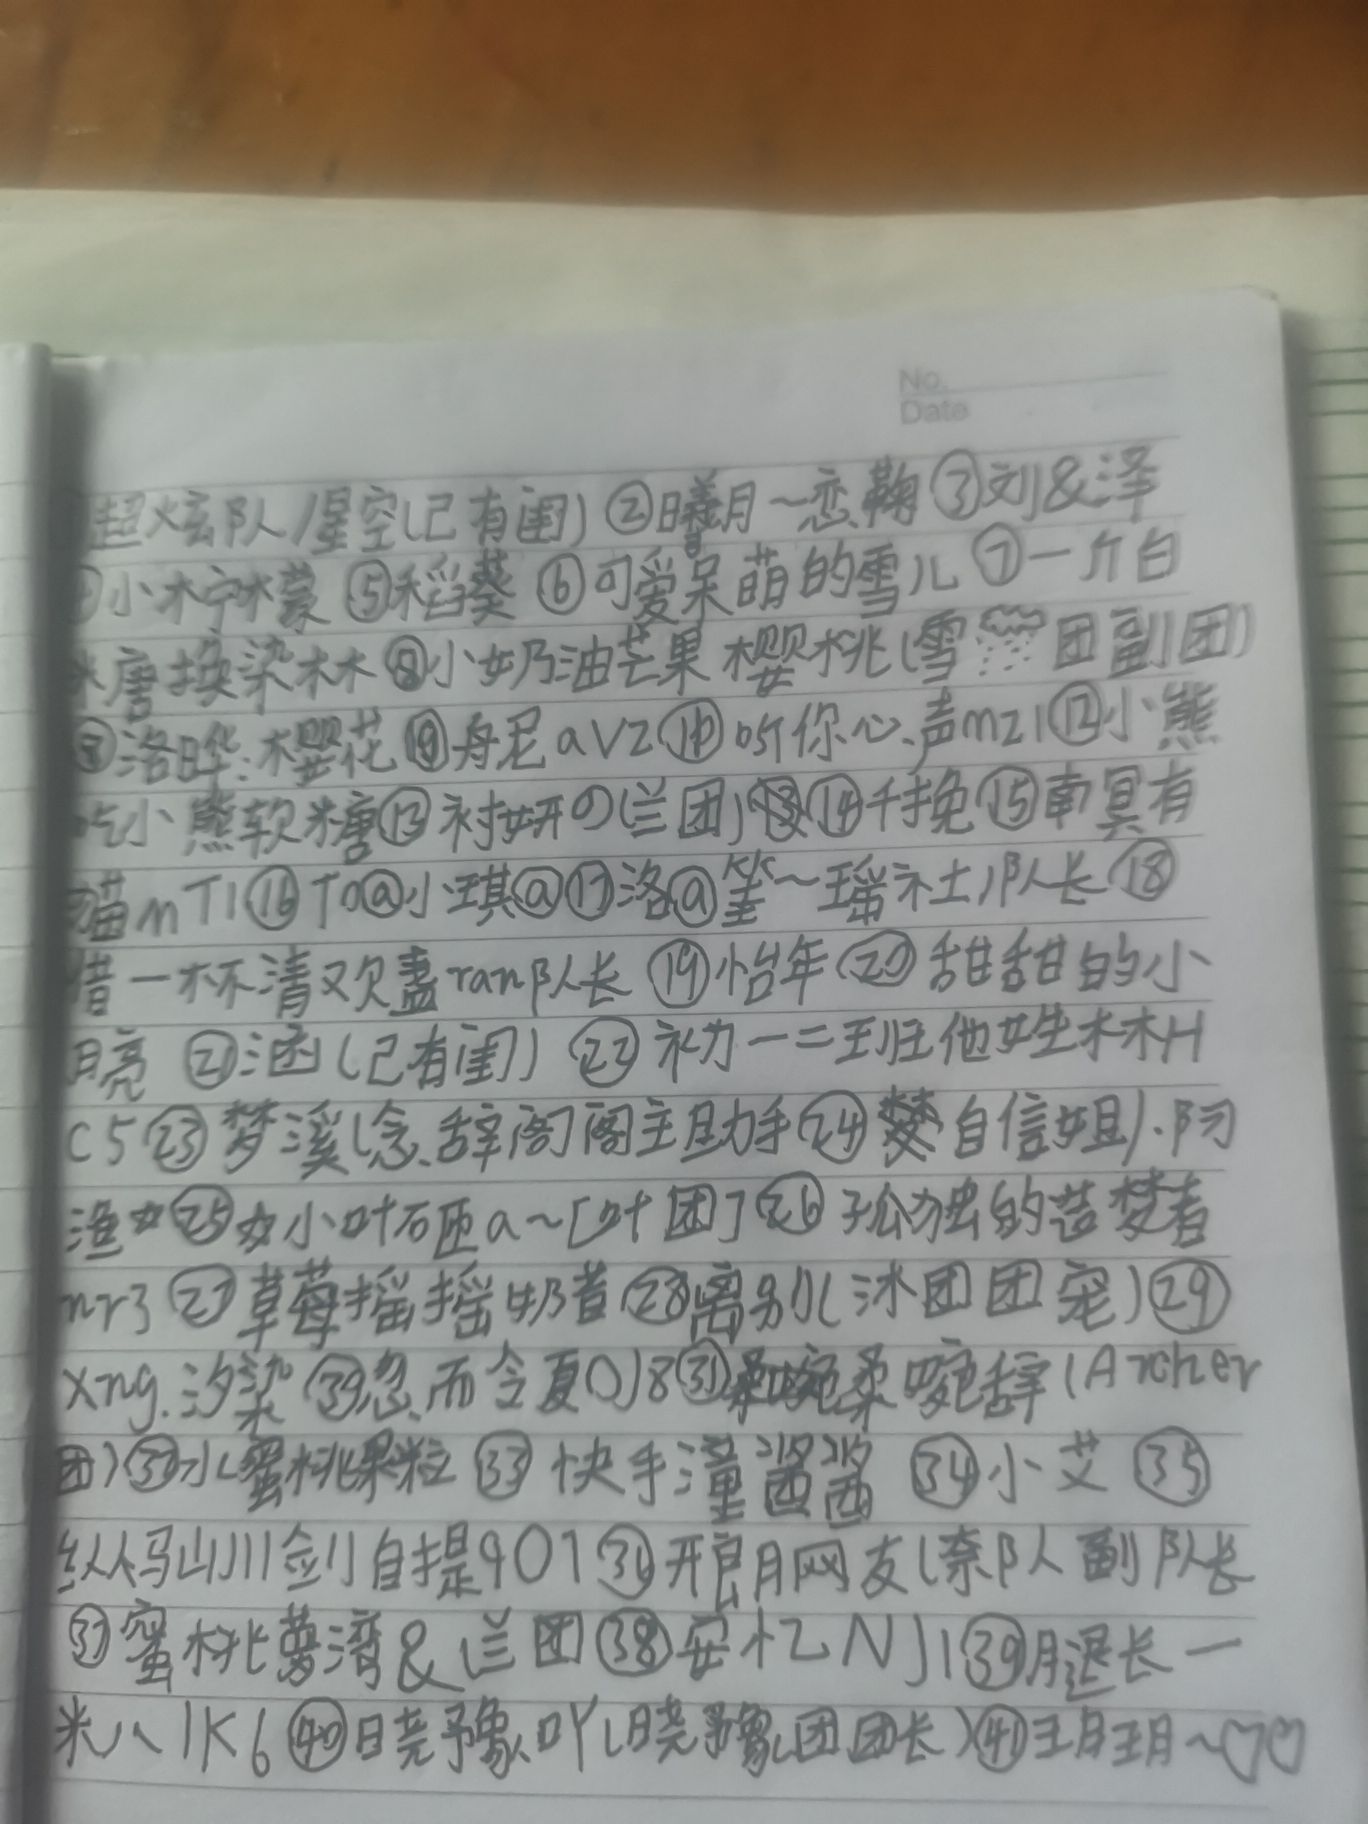 No.
Date
超炫队/星空(已有闺) ②曦月~恋鞠 ③刘&泽
④小柠檬 ⑤稻葵 ⑥可爱呆萌的雪儿 ⑦一介白
糖换染林 ⑧小奶油芒果樱桃(雪 团副团)
⑨洛晔:樱花 ⑩舟尼aVZ ⑪听你心声mz1 ⑫小熊
吃小熊软糖 ⑬衬妍の(兰团) ⑭千挽 ⑮南冥有
猫mT1 ⑯To@小琪@ ⑰洛@笙~瑶社)队长 ⑱
惜一杯清欢盡ran队长 ⑲怡年 ⑳甜甜的小
月亮 ㉑涵(已有闺) ㉒初一二班他姓林H
C5 ㉓梦溪(念辞阁)阁主助手 ㉔樊自信姐).阿
渔 ㉕小叶砸a~[叶团] ㉖孤独的造梦者
mr3 ㉗草莓摇摇奶昔 ㉘离别(冰团团宠) ㉙
Xng.汐染 忽而今夏0J8 ㉛柔婉辞(Archer
团) ㉜水蜜桃果粒 ㉝快手潼酱酱 ㉞小艾 ㉟
纵马山川剑自提901 ㊱开朗网友(奈队副队长
㊲蜜桃萝湾&兰团 ㊳安忆NJ1 ㊴腿长一
米八1K6 ㊵晓豫吖(晓豫团团长) ㊶玥玥~♡♡